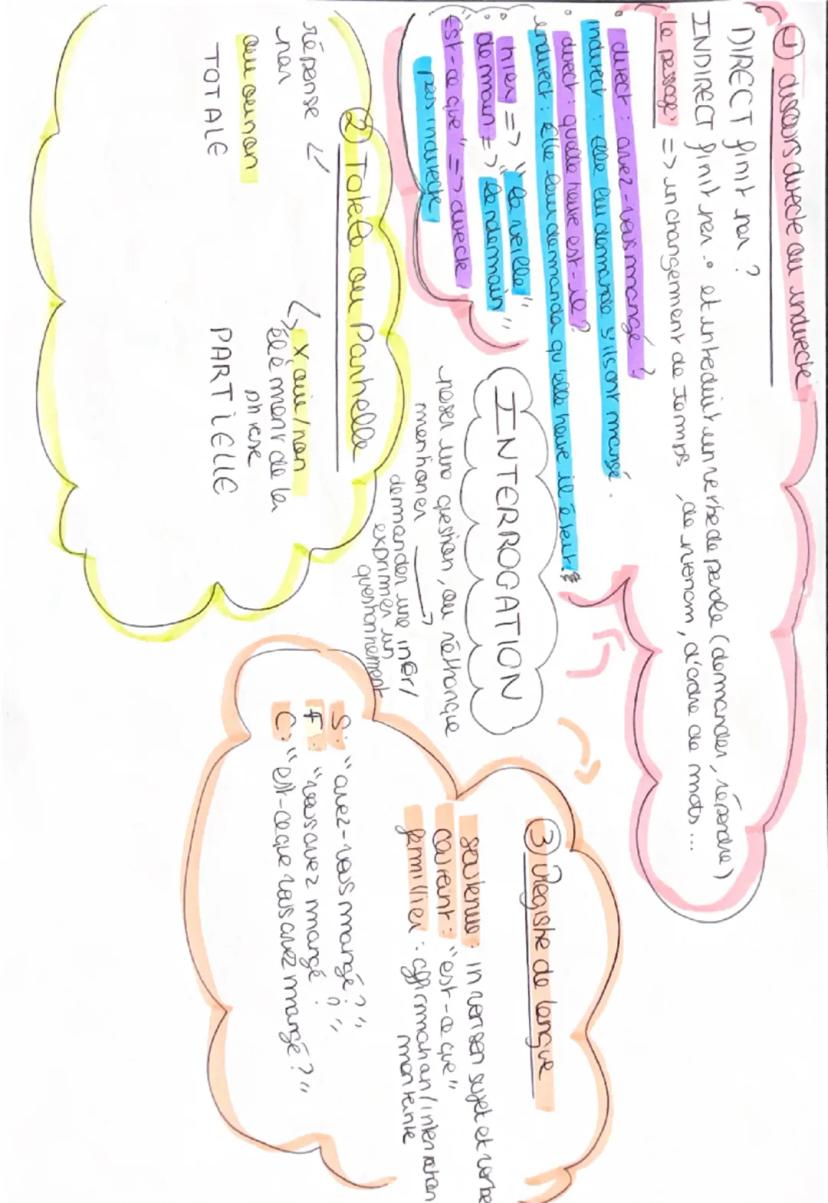 ① discours directe ou indirecte
DIRECT finit par ?
INDIRECT finit par . et introduit un verbe de parole (demander, répondre)
le passage => un changement de temps, de pronom, d'ordre de mots ...
• direct : avez-vous mangé ?
indirect : elle lui demande s'ils ont mangé.
• direct : quelle heure est-il ?
indirect : Elle leur demanda qu'elle heure il était.
• hier => "la veille"
demain => "lendemain"
"est-ce que" => directe
pas indirecte
INTERROGATION
poser une question, ou réthorique
mentioner → demander une info/
exprimer un
questionnement
② Totale ou Partielle
réponse
par
oui ou non
TOTALE
x oui/non
élément de la
phrase
PARTIELLE
③ Registre de langue
soutenue : inversion sujet et verbe
courant : "est-ce que"
familier : affirmation/intonation
montante
S : "avez-vous mangé ?"
F : "vous avez mangé ?"
C : "est-ce que vous avez mangé ?"